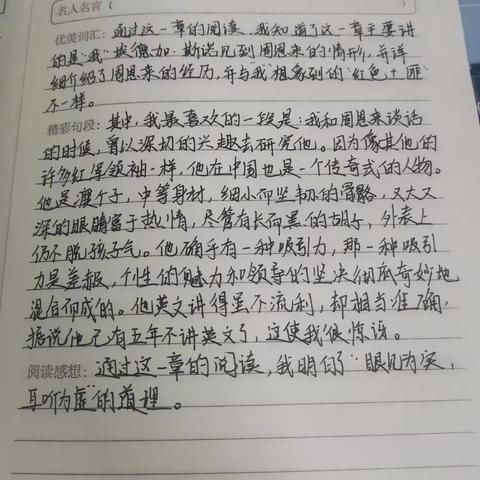 名人名言（
优美词汇：通过这一章的阅读，我知道了这一章主要讲
的是“我”埃德加·斯诺见到周恩来的情形，并详
细介绍了周恩来的经历，并与“我”想象到的“红色土匪”
不一样。
精彩句段：其中，我最喜欢的一段是：我和周恩来谈话
的时候，曾以深切的兴趣去研究他。因为像其他的
许多红军领袖一样，他在中国也是一个传奇式的人物。
他是瘦个子，中等身材，细小而坚韧的骨骼，又大又
深的眼睛富于热情，尽管有长而黑的胡子，外表上
仍不脱孩子气。他确乎有一种吸引力，那一种吸引
力是羞赧，个性的魅力和领导的坚决彻底奇妙地
混合而成的。他英文讲得虽不流利，却相当准确，
据说他已有五年不讲英文了，这使我很惊讶。
阅读感想：通过这一章的阅读，我明白了“眼见为实，
耳听为虚”的道理。